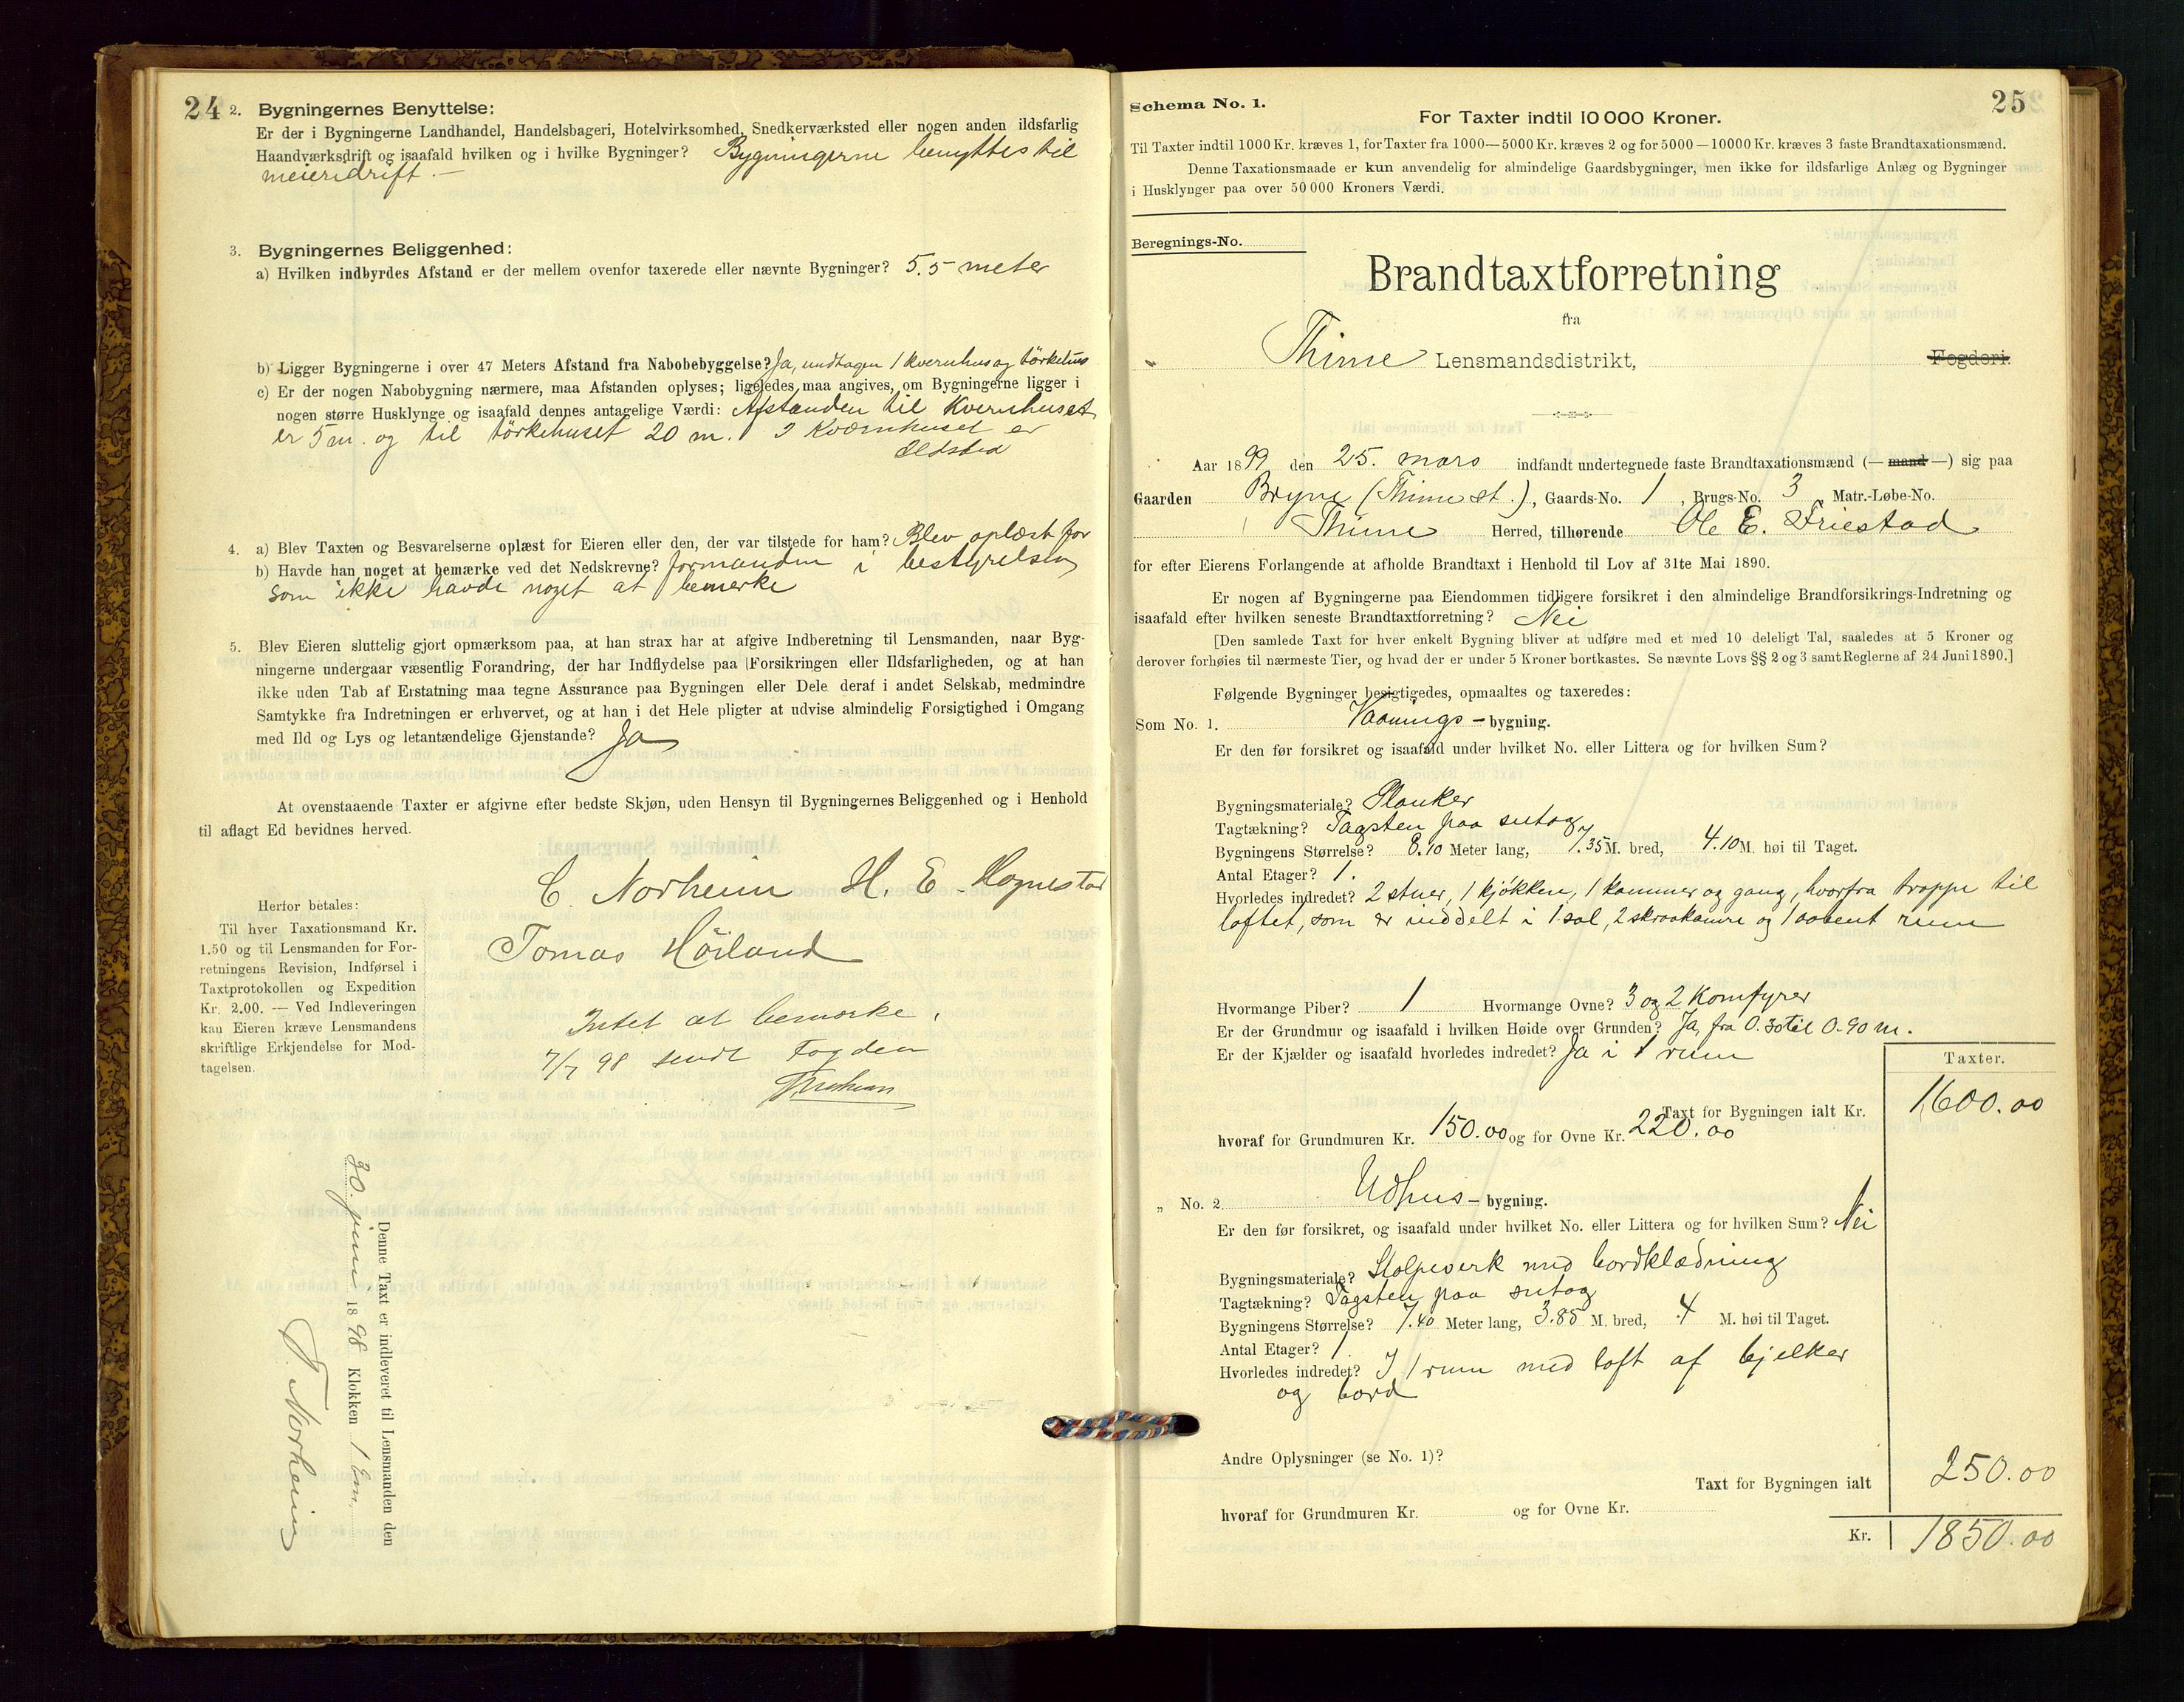 24
2. Bygningernes Benyttelse:
Er der i Bygningerne Landhandel, Handelsbageri, Hotelvirksomhed, Snedkerværksted eller nogen anden ildsfarlig
Haandværksdrift og isaafald hvilken og i hvilke Bygninger? Bygningerne benyttes til
meieridrift.—
3. Bygningernes Beliggenhed:
a) Hvilken indbyrdes Afstand er der mellem ovenfor taxerede eller nævnte Bygninger? 5.5 meter
b) Ligger Bygningerne i over 47 Meters Afstand fra Nabobebyggelse? Ja, undtagen 1 kvernhus og törkehus
c) Er der nogen Nabobygning nærmere, maa Afstanden oplyses; ligeledes maa angives, om Bygningerne ligger i
nogen større Husklynge og isaafald dennes antagelige Værdi: Afstanden til Kvernhuset
er 5 m. og til törkehuset 20 m. I Kværnhuset er
Ildsted
4. a) Blev Taxten og Besvarelserne oplæst for Eieren eller den, der var tilstede for ham? Blev oplæst for
b) Havde han noget at bemærke ved det Nedskrevne? formanden i bestyrelsen
som ikke havde noget at bemerke
5. Blev Eieren sluttelig gjort opmærksom paa, at han strax har at afgive Indberetning til Lensmanden, naar Byg-
ningerne undergaar væsentlig Forandring, der har Indflydelse paa Forsikringen eller Ildsfarligheden, og at han
ikke uden Tab af Erstatning maa tegne Assurance paa Bygningen eller Dele deraf i andet Selskab, medmindre
Samtykke fra Indretningen er erhvervet, og at han i det Hele pligter at udvise almindelig Forsigtighed i Omgang
med Ild og Lys og letantændelige Gjenstande? Ja
At ovenstaaende Taxter er afgivne efter bedste Skjøn, uden Hensyn til Bygningernes Beliggenhed og i Henhold
til aflagt Ed bevidnes herved.
C. Norheim H. E. Hognestad
Tomas Höiland
Herfor betales:
Til hver Taxationsmand Kr.
1.50 og til Lensmanden for For-
retningens Revision, Indførsel i
Taxtprotokollen og Expedition
Kr. 2.00. — Ved Indleveringen
kan Eieren kræve Lensmandens
skriftlige Erkjendelse for Mod-
tagelsen.
Intet at bemerke.
7/7 98 sendt Fogden
Denne Taxt er indleveret til Lensmanden den
30. juni 1898 Klokken 1 Em.
T. Norheim
25
Schema No. 1.
For Taxter indtil 10 000 Kroner.
Til Taxter indtil 1000 Kr. kræves 1, for Taxter fra 1000—5000 Kr. kræves 2 og for 5000—10000 Kr. kræves 3 faste Brandtaxationsmænd.
Denne Taxationsmaade er kun anvendelig for almindelige Gaardsbygninger, men ikke for ildsfarlige Anlæg og Bygninger
i Husklynger paa over 50 000 Kroners Værdi.
Beregnings-No.
Brandtaxtforretning
fra
Thime Lensmandsdistrikt, Fogderi.
Aar 1899 den 25. mars indfandt undertegnede faste Brandtaxationsmænd (— mand —) sig paa
Gaarden Bryne (Thime st.), Gaards-No. 1, Brugs-No. 3 Matr.-Løbe-No.
Thime Herred, tilhørende Ole E. Friestad
for efter Eierens Forlangende at afholde Brandtaxt i Henhold til Lov af 31te Mai 1890.
Er nogen af Bygningerne paa Eiendommen tidligere forsikret i den almindelige Brandforsikrings-Indretning og
isaafald efter hvilken seneste Brandtaxtforretning? Nei
[Den samlede Taxt for hver enkelt Bygning bliver at udføre med et med 10 deleligt Tal, saaledes at 5 Kroner og
derover forhøies til nærmeste Tier, og hvad der er under 5 Kroner bortkastes. Se nævnte Lovs §§ 2 og 3 samt Reglerne af 24 Juni 1890.]
Følgende Bygninger besigtigedes, opmaaltes og taxeredes:
Som No. 1. Vaanings-bygning.
Er den før forsikret og isaafald under hvilket No. eller Littera og for hvilken Sum?
Bygningsmateriale? Planker
Tagtækning? Tagsten paa sutag
Bygningens Størrelse? 8.10 Meter lang, 7.35 M. bred, 4.10 M. høi til Taget.
Antal Etager? 1.
Hvorledes indredet? 2 stuer, 1 kjøkken, 1 kammer og gang, hvorfra trappe til
loftet, som er inddelt i 1 sal, 2 skraakamre og 1 aabent rum
Hvormange Piber? 1 Hvormange Ovne? 3 og 2 Komfyrer
Er der Grundmur og isaafald i hvilken Høide over Grunden? Ja, fra 0.30 til 0.90 m.
Er der Kjælder og isaafald hvorledes indredet? Ja i 1 rum
Taxter.
Taxt for Bygningen ialt Kr. 1600.00
hvoraf for Grundmuren Kr. 150.00 og for Ovne Kr. 220.00
„ No. 2 Udhus-bygning.
Er den før forsikret, og isaafald under hvilket No. eller Littera og for hvilken Sum? Nei
Bygningsmateriale? Stolpeverk med bordklædning
Tagtækning? Tagsten paa sutag
Bygningens Størrelse? 7.40 Meter lang, 3.85 M. bred, 4 M. høi til Taget.
Antal Etager? 1.
Hvorledes indredet? I 1 rum med loft af bjelker
og bord
Andre Oplysninger (se No. 1)?
Taxt for Bygningen ialt 250.00
hvoraf for Grundmuren Kr. og for Ovne Kr.
Kr. 1850.00